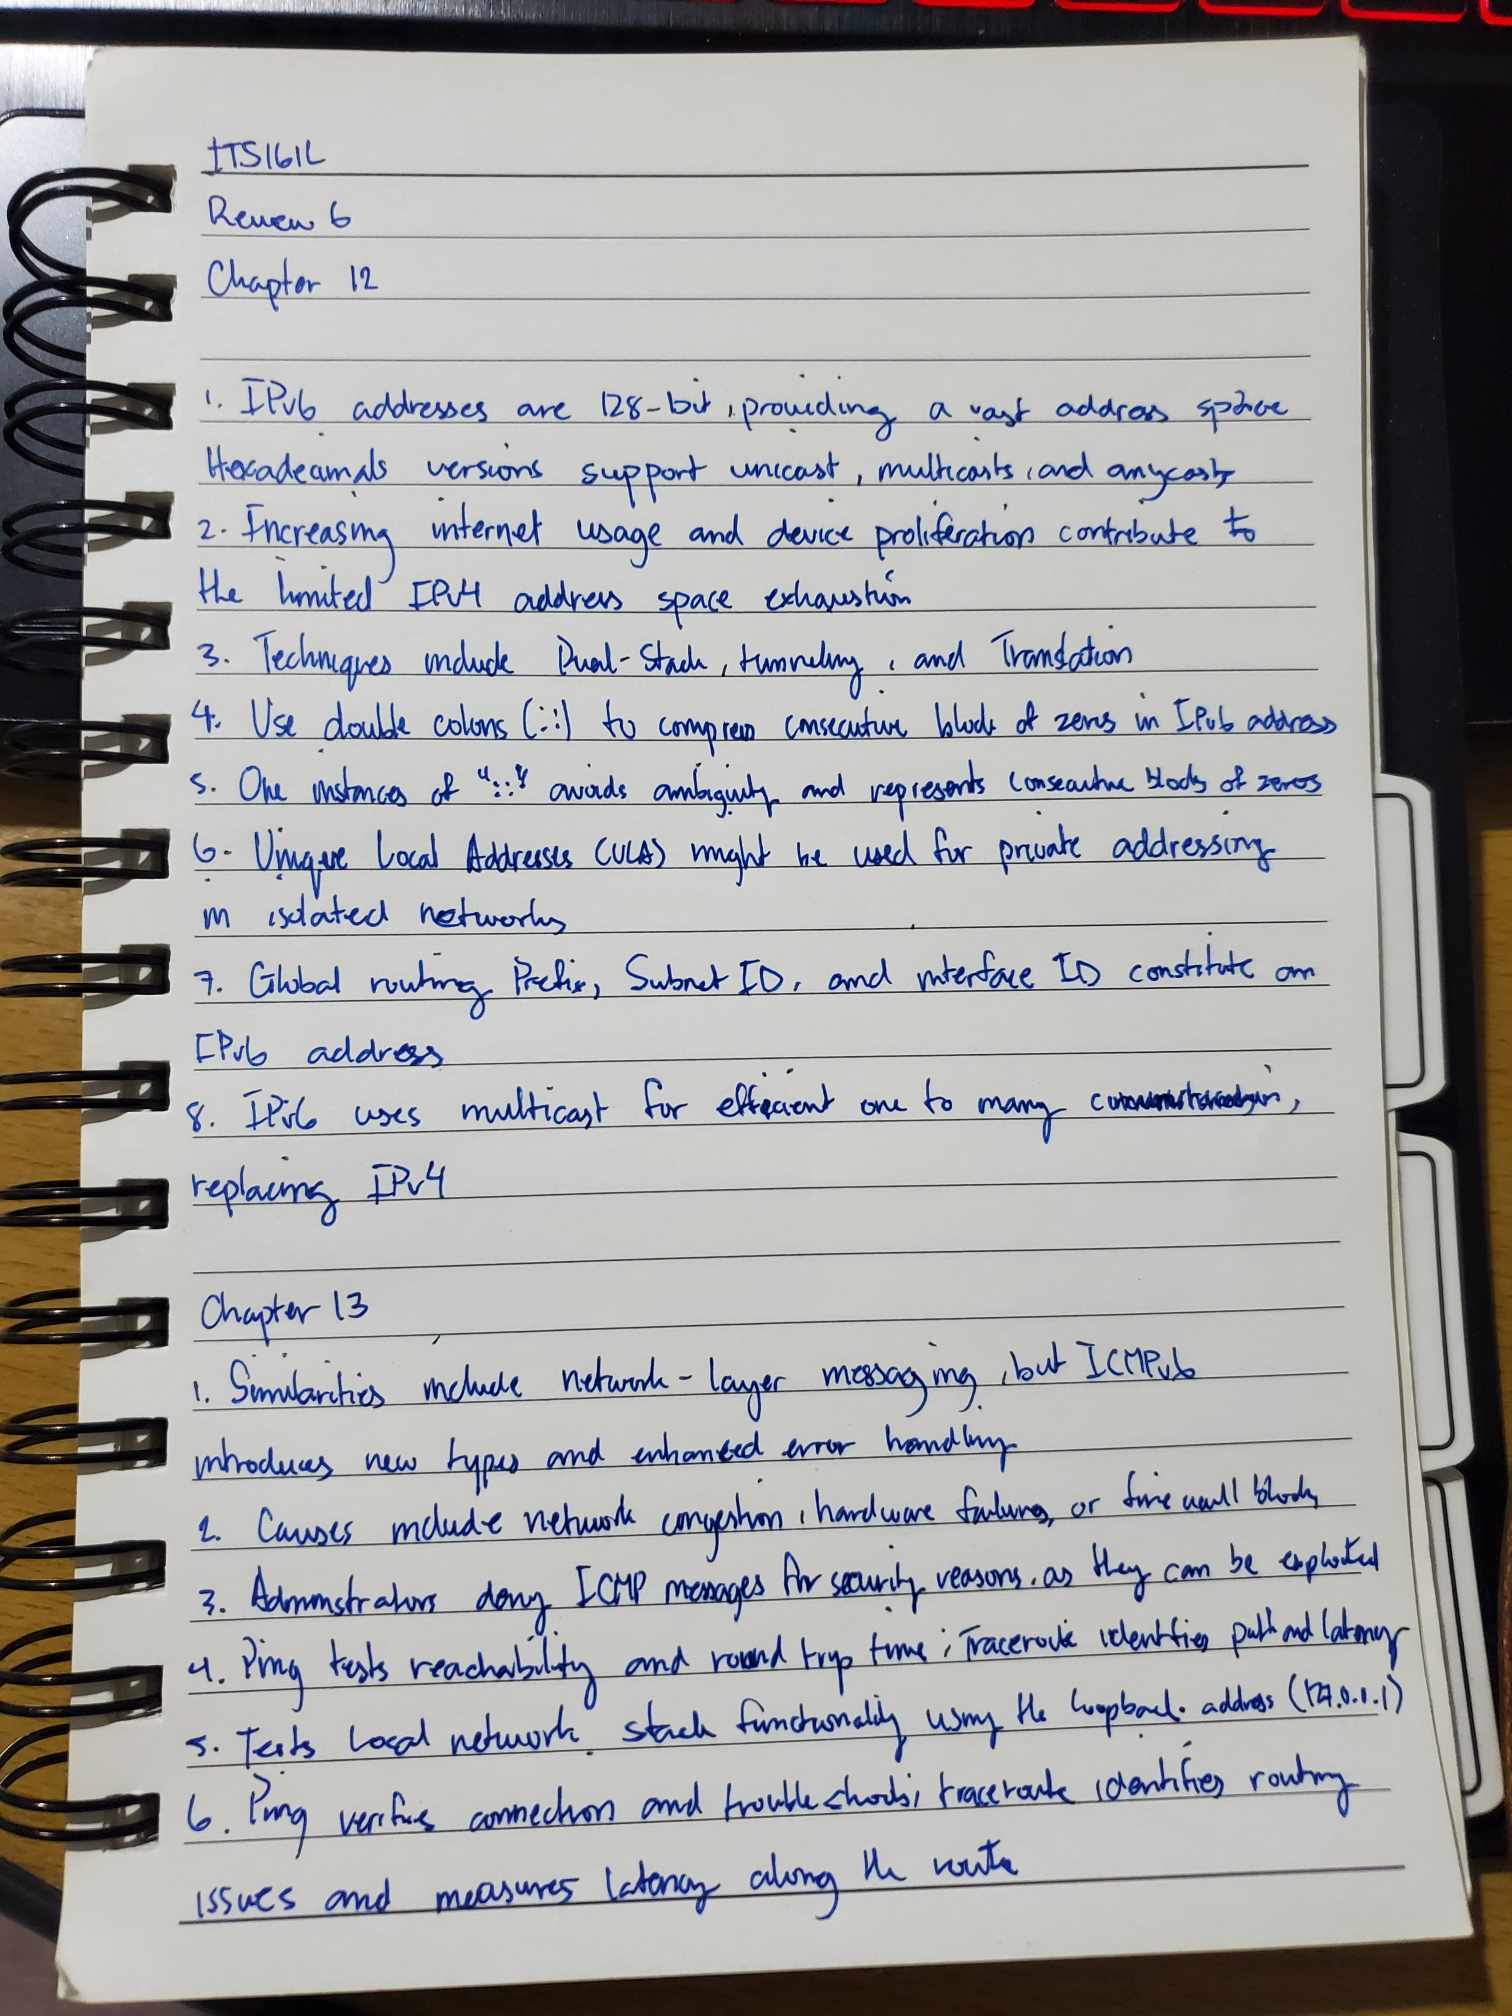 ITS161L
Review 6
Chapter 12
1. IPv6 addresses are 128-bit, providing a vast address space
Hexadecimals versions support unicast, multicasts, and anycasts
2. Increasing internet usage and device proliferation contribute to
the limited IPv4 address space exhaustion
3. Techniques include Dual-Stack, tunneling, and Translation
4. Use double colons (::) to compress consecutive block of zeros in IPv6 address
5. One instances of "::" avoids ambiguity and represents consecutive blocks of zeros
6. Unique Local Addresses (ULA) might be used for private addressing
in isolated networks
7. Global routing Prefix, Subnet ID, and interface ID constitute an
IPv6 address
8. IPv6 uses multicast for efficient one to many
replacing IPv4
Chapter 13
1. Similarities include network-layer messaging, but ICMPv6
introduces new types and enhanced error handling
2. Causes include network congestion, hardware failures, or firewall blocks
3. Administrators deny ICMP messages for security reasons, as they can be exploited
4. Ping tests reachability and round tryp time; Traceroute identifies path and latency
5. Tests local network stack functionality using the loopback address (127.0.0.1)
6. Ping verifies connection and troubleshoots; traceroute identifies routing
issues and measures latency along the route